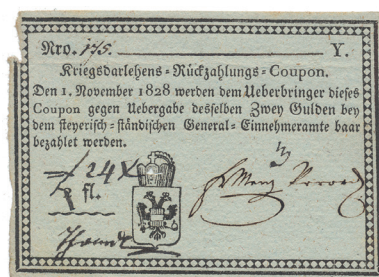 Nro. 175. Y.
Kriegsdarlehens-Rückzahlungs-Coupon.
Den 1. November 1828 werden dem Ueberbringer dieses
Coupon gegen Uebergabe desselben Zwey Gulden bey
dem steyerisch-ständischen General-Einnehmeramte baar
bezahlet werden.
24 X
fl.